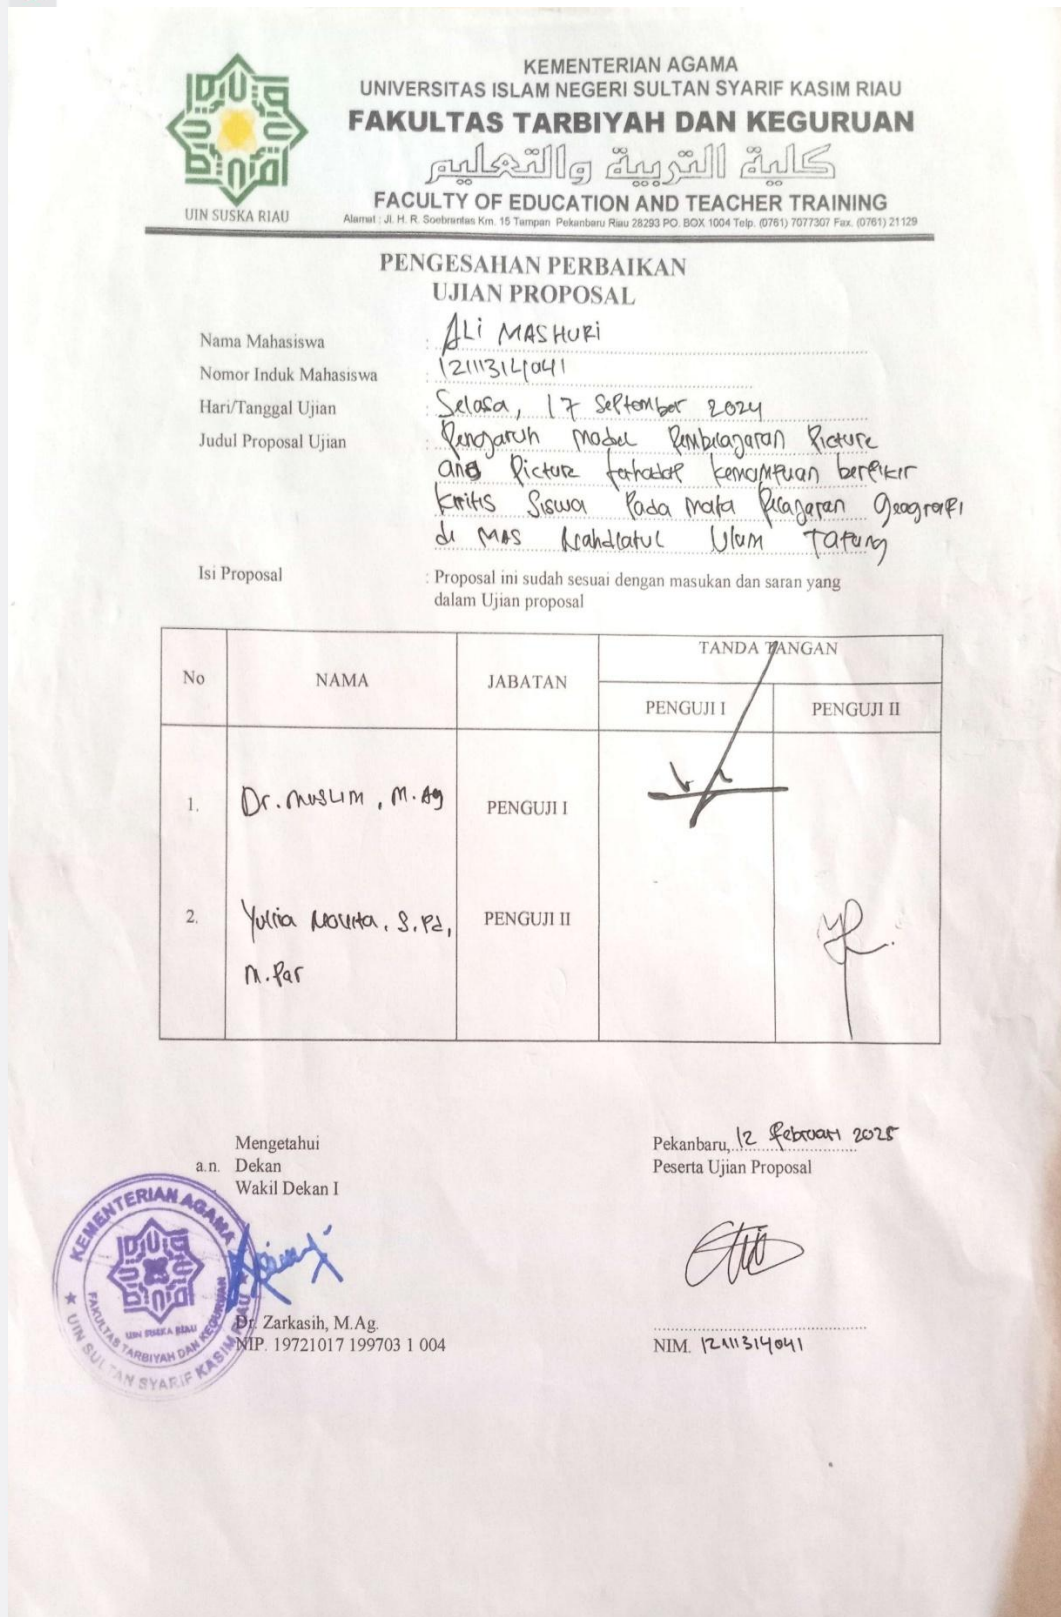 KEMENTERIAN AGAMA
UNIVERSITAS ISLAM NEGERI SULTAN SYARIF KASIM RIAU
FAKULTAS TARBIYAH DAN KEGURUAN
كلية التربية والتعليم
FACULTY OF EDUCATION AND TEACHER TRAINING
Alamat : Jl. H. R. Soebrantas Km. 15 Tampan Pekanbaru Riau 28293 PO. BOX 1004 Telp. (0761) 7077307 Fax. (0761) 21129
UIN SUSKA RIAU
PENGESAHAN PERBAIKAN
UJIAN PROPOSAL
Nama Mahasiswa : ALI MASHURI
Nomor Induk Mahasiswa : 12111314041
Hari/Tanggal Ujian : Selasa, 17 September 2024
Judul Proposal Ujian : Pengaruh Model Pembelajaran Picture
and Picture terhadap kemampuan berfikir
kritis Siswa Pada Mata Pelajaran Geografi
di MAS Nahdlatul Ulum Tapung
Isi Proposal : Proposal ini sudah sesuai dengan masukan dan saran yang
dalam Ujian proposal
No NAMA JABATAN TANDA TANGAN
PENGUJI I PENGUJI II
1. Dr. Muslim, M.Ag PENGUJI I
2. Yulia Novita, S.Pd, PENGUJI II
M.Par
Mengetahui
a.n. Dekan
Wakil Dekan I
KEMENTERIAN AGAMA
FAKULTAS TARBIYAH DAN KEGURUAN
UIN SUSKA RIAU
UIN SULTAN SYARIF KASIM RIAU
Dr. Zarkasih, M.Ag.
NIP. 19721017 199703 1 004
Pekanbaru, 12 Februari 2025
Peserta Ujian Proposal
NIM. 12111314041